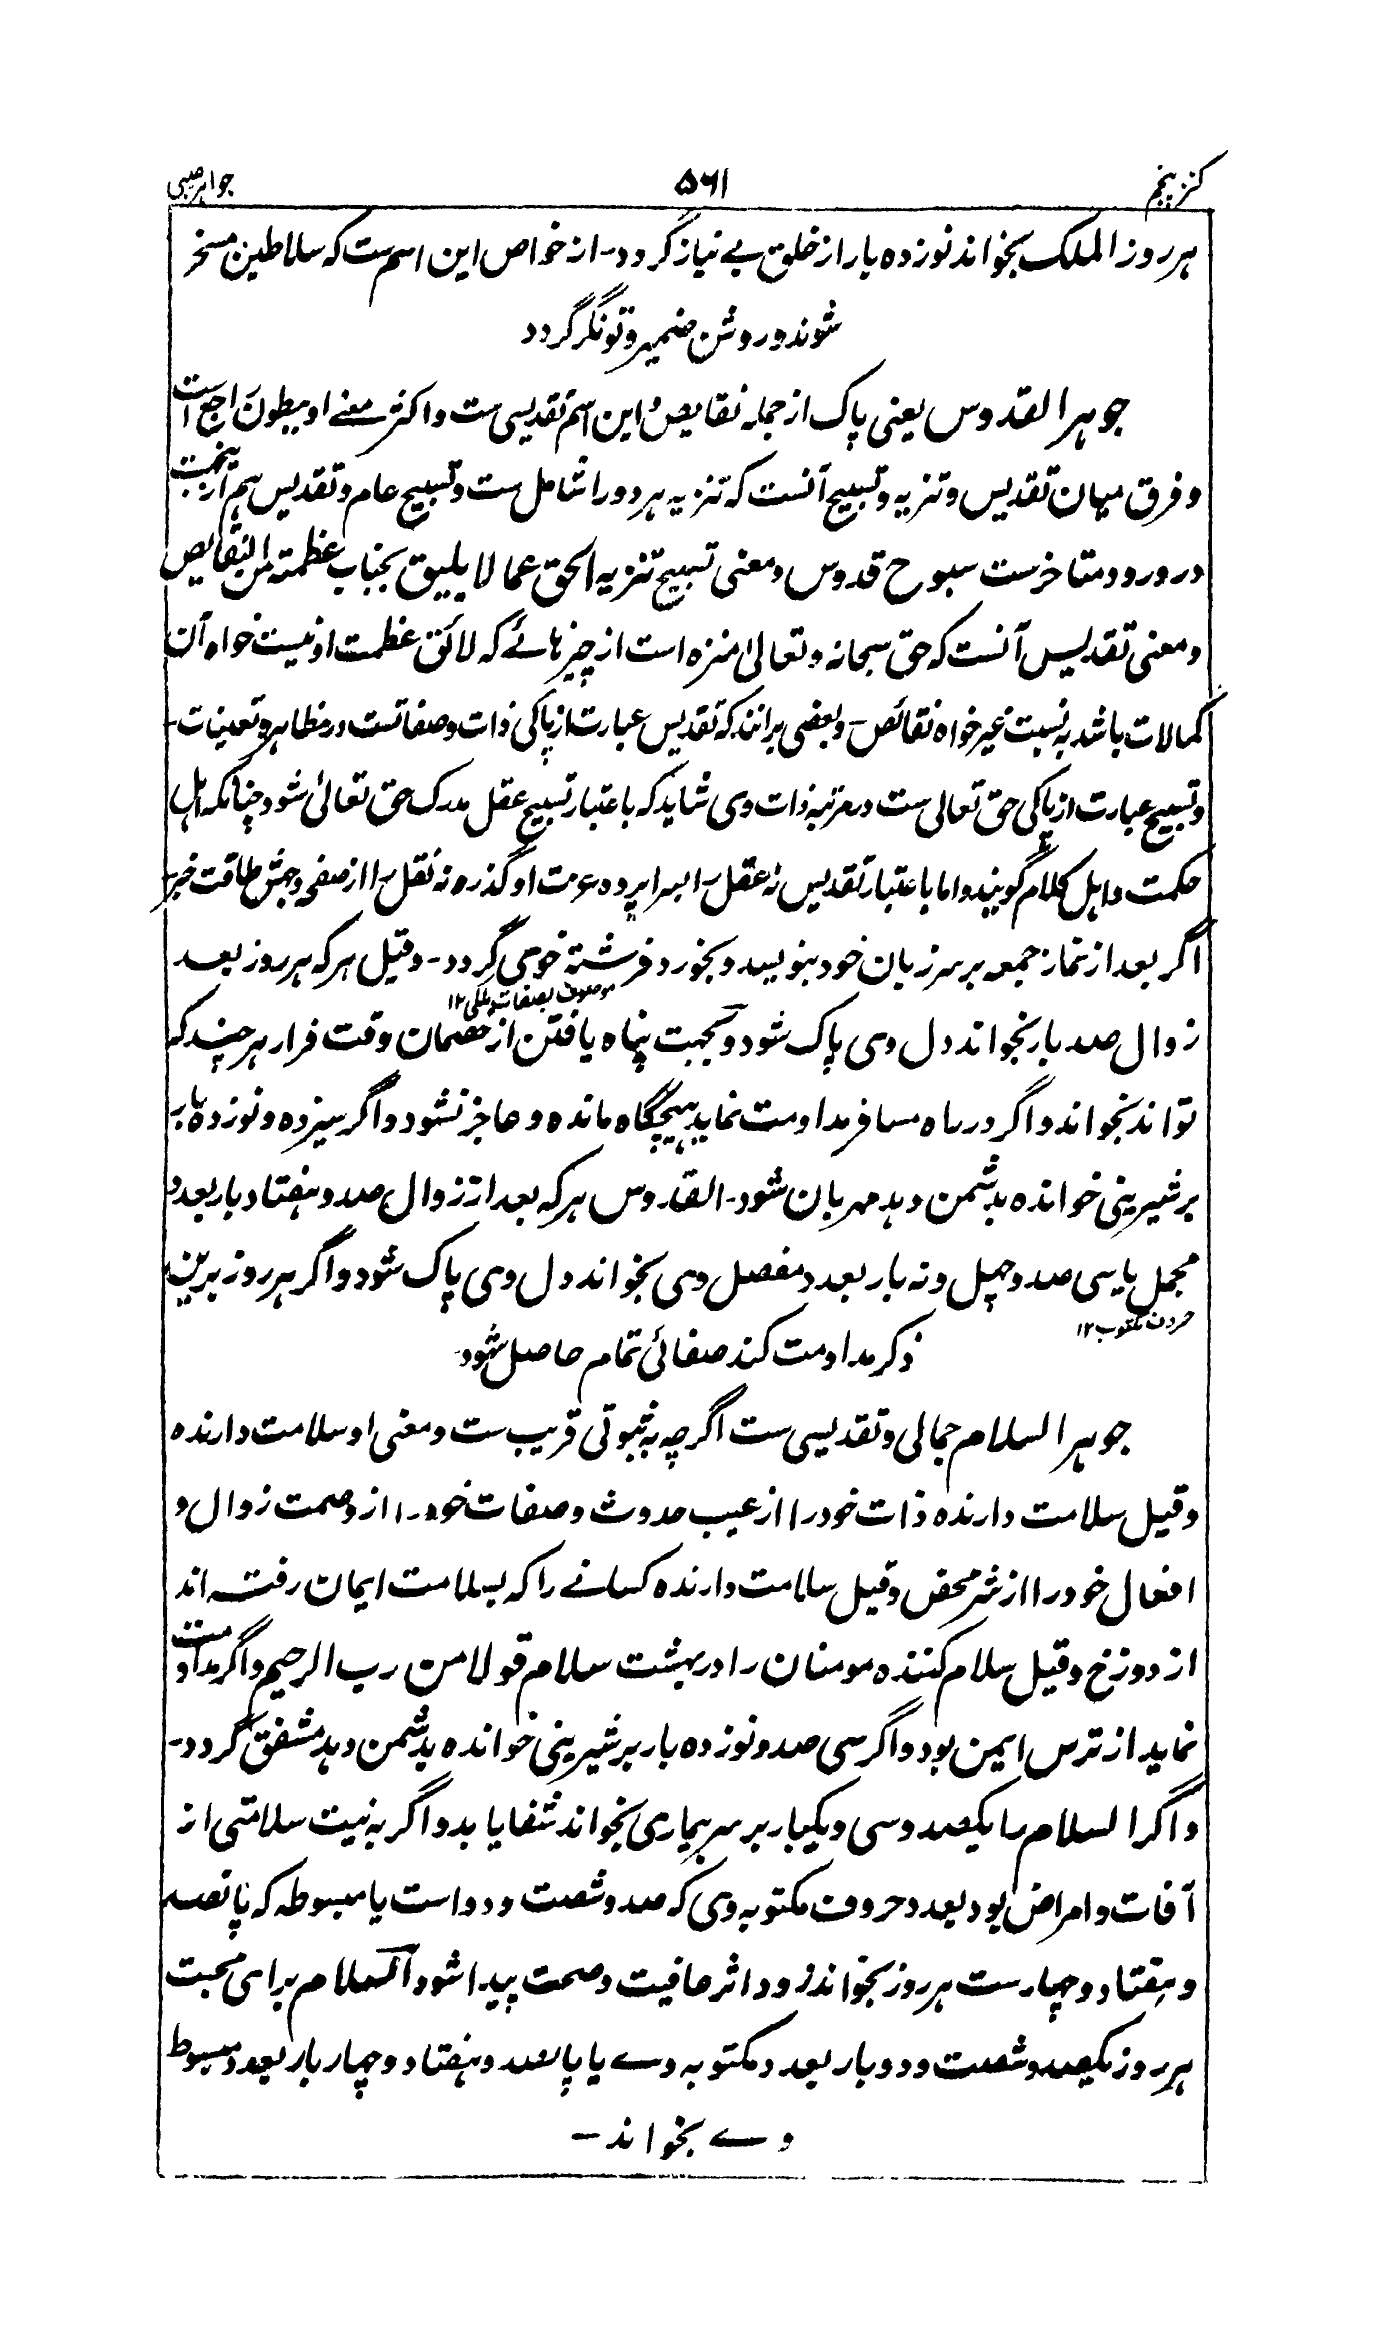 کنز پنجم
۵۶۱
جواهر صبی
هر روز الملک بخواند نوزده بار از خلق بے نیاز گردد۔ از خواص این اسم ست که سلاطین مسخر
شوند و روشن ضمیر و تونگر گردد
جوهر القدوس یعنی پاک از جمله نقایص و این اسم تقدیسی ست و اکثر معنے او ببطون راجع است
و فرق میان تقدیس و تنزیه و تسبیح آنست که تنزیه هر دو را شامل ست و تسبیح عام و تقدیس هم ازینجهت
در ورود متاخرست سبوح قدوس و معنی تسبیح تنزیه الحق عما لا یلیق بجناب عظمته من النقایص
و معنی تقدیس آنست که حق سبحانه و تعالیٰ منزه است از چیز هائے که لائق عظمت او نیست خواه آن
کمالات باشد به نسبت غیر خواه نقائص۔ و بعضی برانند که تقدیس عبارت از پاکی ذات و صفاتست در مظاهر و تعینات۔
و تسبیح عبارت از پاکی حق تعالی ست در مرتبه ذات وی شاید که باعتبار تسبیح عقل مدرک حق تعالیٰ شود چنانکه اهل
حکمت و اهل کلام گویند و اما باعتبار تقدیس نه عقل را بسراپرده عزت او گذر و نه نقل را از صفحه وحیش طاقت خبر۔
اگر بعد از نماز جمعه بر سر زبان خود بنویسد و بخورد فرشته خوی گردد۔ و قیل هر که هر روز بعد
موصوف بصفات ملکی ۱۲
زوال صد بار بخواند دل وی پاک شود و بجهت پناه یافتن از خصمان وقت فرار هر چند که
تواند بخواند و اگر در راه مسافر مداومت نماید هیچگاه مانده و عاجز نشود و اگر سیزده و نوزده بار
بر شیرینی خوانده بدشمن دهد مهربان شود۔ القدوس هر که بعد از زوال صد و هفتاد بار بعدد
مجمل یا سی صد و چهل و نه بار بعدد مفصل وی بخواند دل وی پاک شود و اگر هر روز برین
حروف مکتوب ۱۲
ذکر مداومت کند صفائی تمام حاصل شود۔
جوهر السلام جمالی و تقدیسی ست اگرچه به ثبوتی قریب ست و معنی او سلامت دارنده
و قیل سلامت دارنده ذات خود را از عیب حدوث و صفات خود را از وصمت زوال و
افعال خود را از شر محض و قیل سلامت دارنده کسانے را که بسلامت ایمان رفته اند
از دوزخ و قیل سلام کننده مومنان را در بهشت سلام قولا من رب الرحیم و اگر مداومت
نماید از ترس ایمن بود و اگر سی صد و نوزده بار بر شیرینی خوانده بدشمن دهد مشفق گردد۔
و اگر السلام را یکصد و سی و یکبار بر سر بیماری بخواند شفا یابد و اگر به نیت سلامتی از
آفات و امراض بود بعدد حروف مکتوبه وی که صد و شصت و دو است یا مبسوطه که پانصد
و هفتاد و چهارست هر روز بخواند زود اثر عافیت و صحت پیدا شود السلام برای محبت
هر روز یکصد و شصت و دو بار بعدد مکتوبه وے یا پانصد و هفتاد و چهار بار بعدد مبسوط
وے بخواند۔